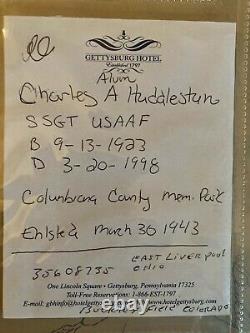 GETTYSBURG HOTEL
Established 1797
Alum
Charles A Huddlestun
SSGT USAAF
B 9-13-1923
D 3-20-1998
Columbiana County Mem. Park
Enlsted March 30 1943
EAST LIVERPOOL
OHIO
35608755
One Lincoln Square • Gettysburg, Pennsylvania 17325
Toll-Free Reservations: 1-866-EST-1797
FIELD COLORADO